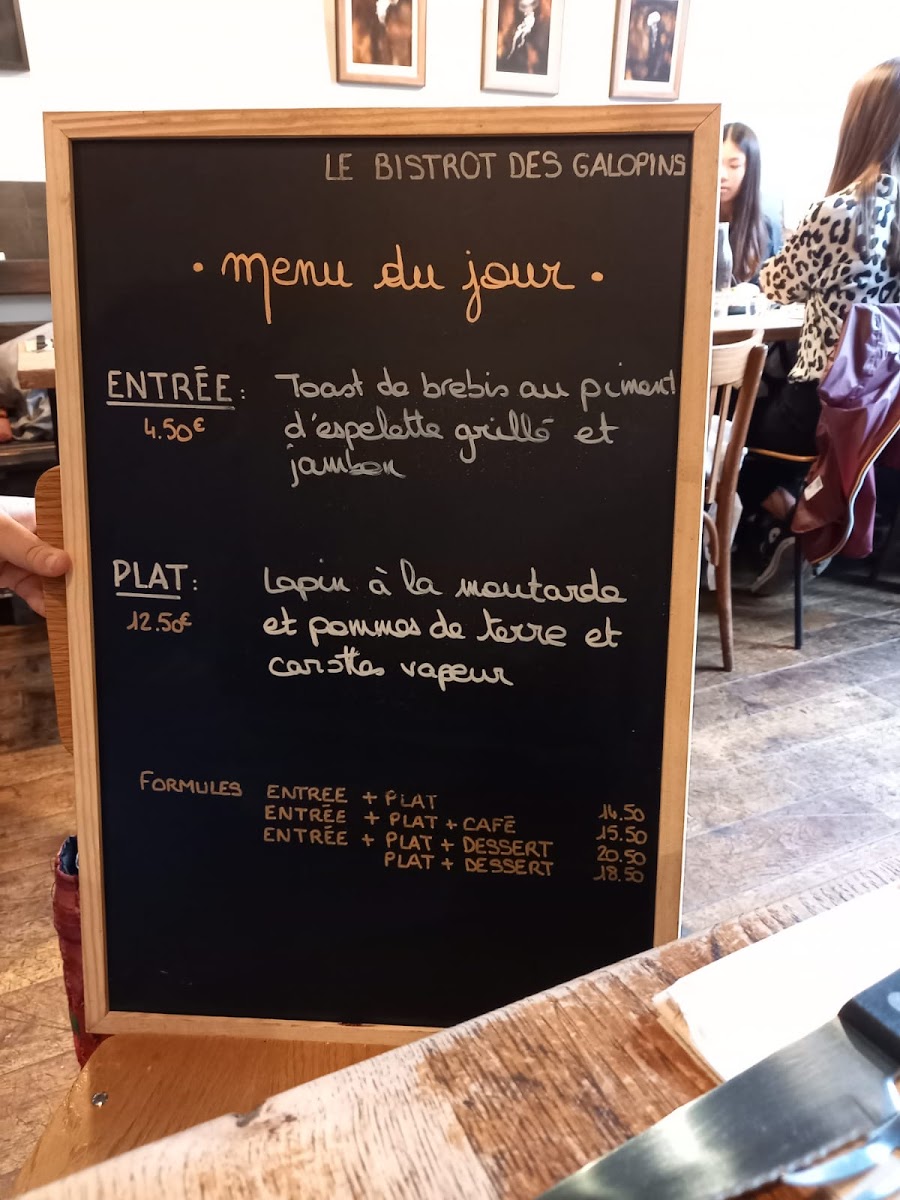 LE BISTROT DES GALOPINS
• Menu du jour •
ENTRÉE: Toast de brebis au piment
4.50€ d'espelette grillé et
jambon
PLAT: Lapin à la moutarde
12.50€ et pommes de terre et
carottes vapeur
FORMULES ENTREE + PLAT 14.50
ENTRÉE + PLAT + CAFÉ 15.50
ENTRÉE + PLAT + DESSERT 20.50
PLAT + DESSERT 18.50